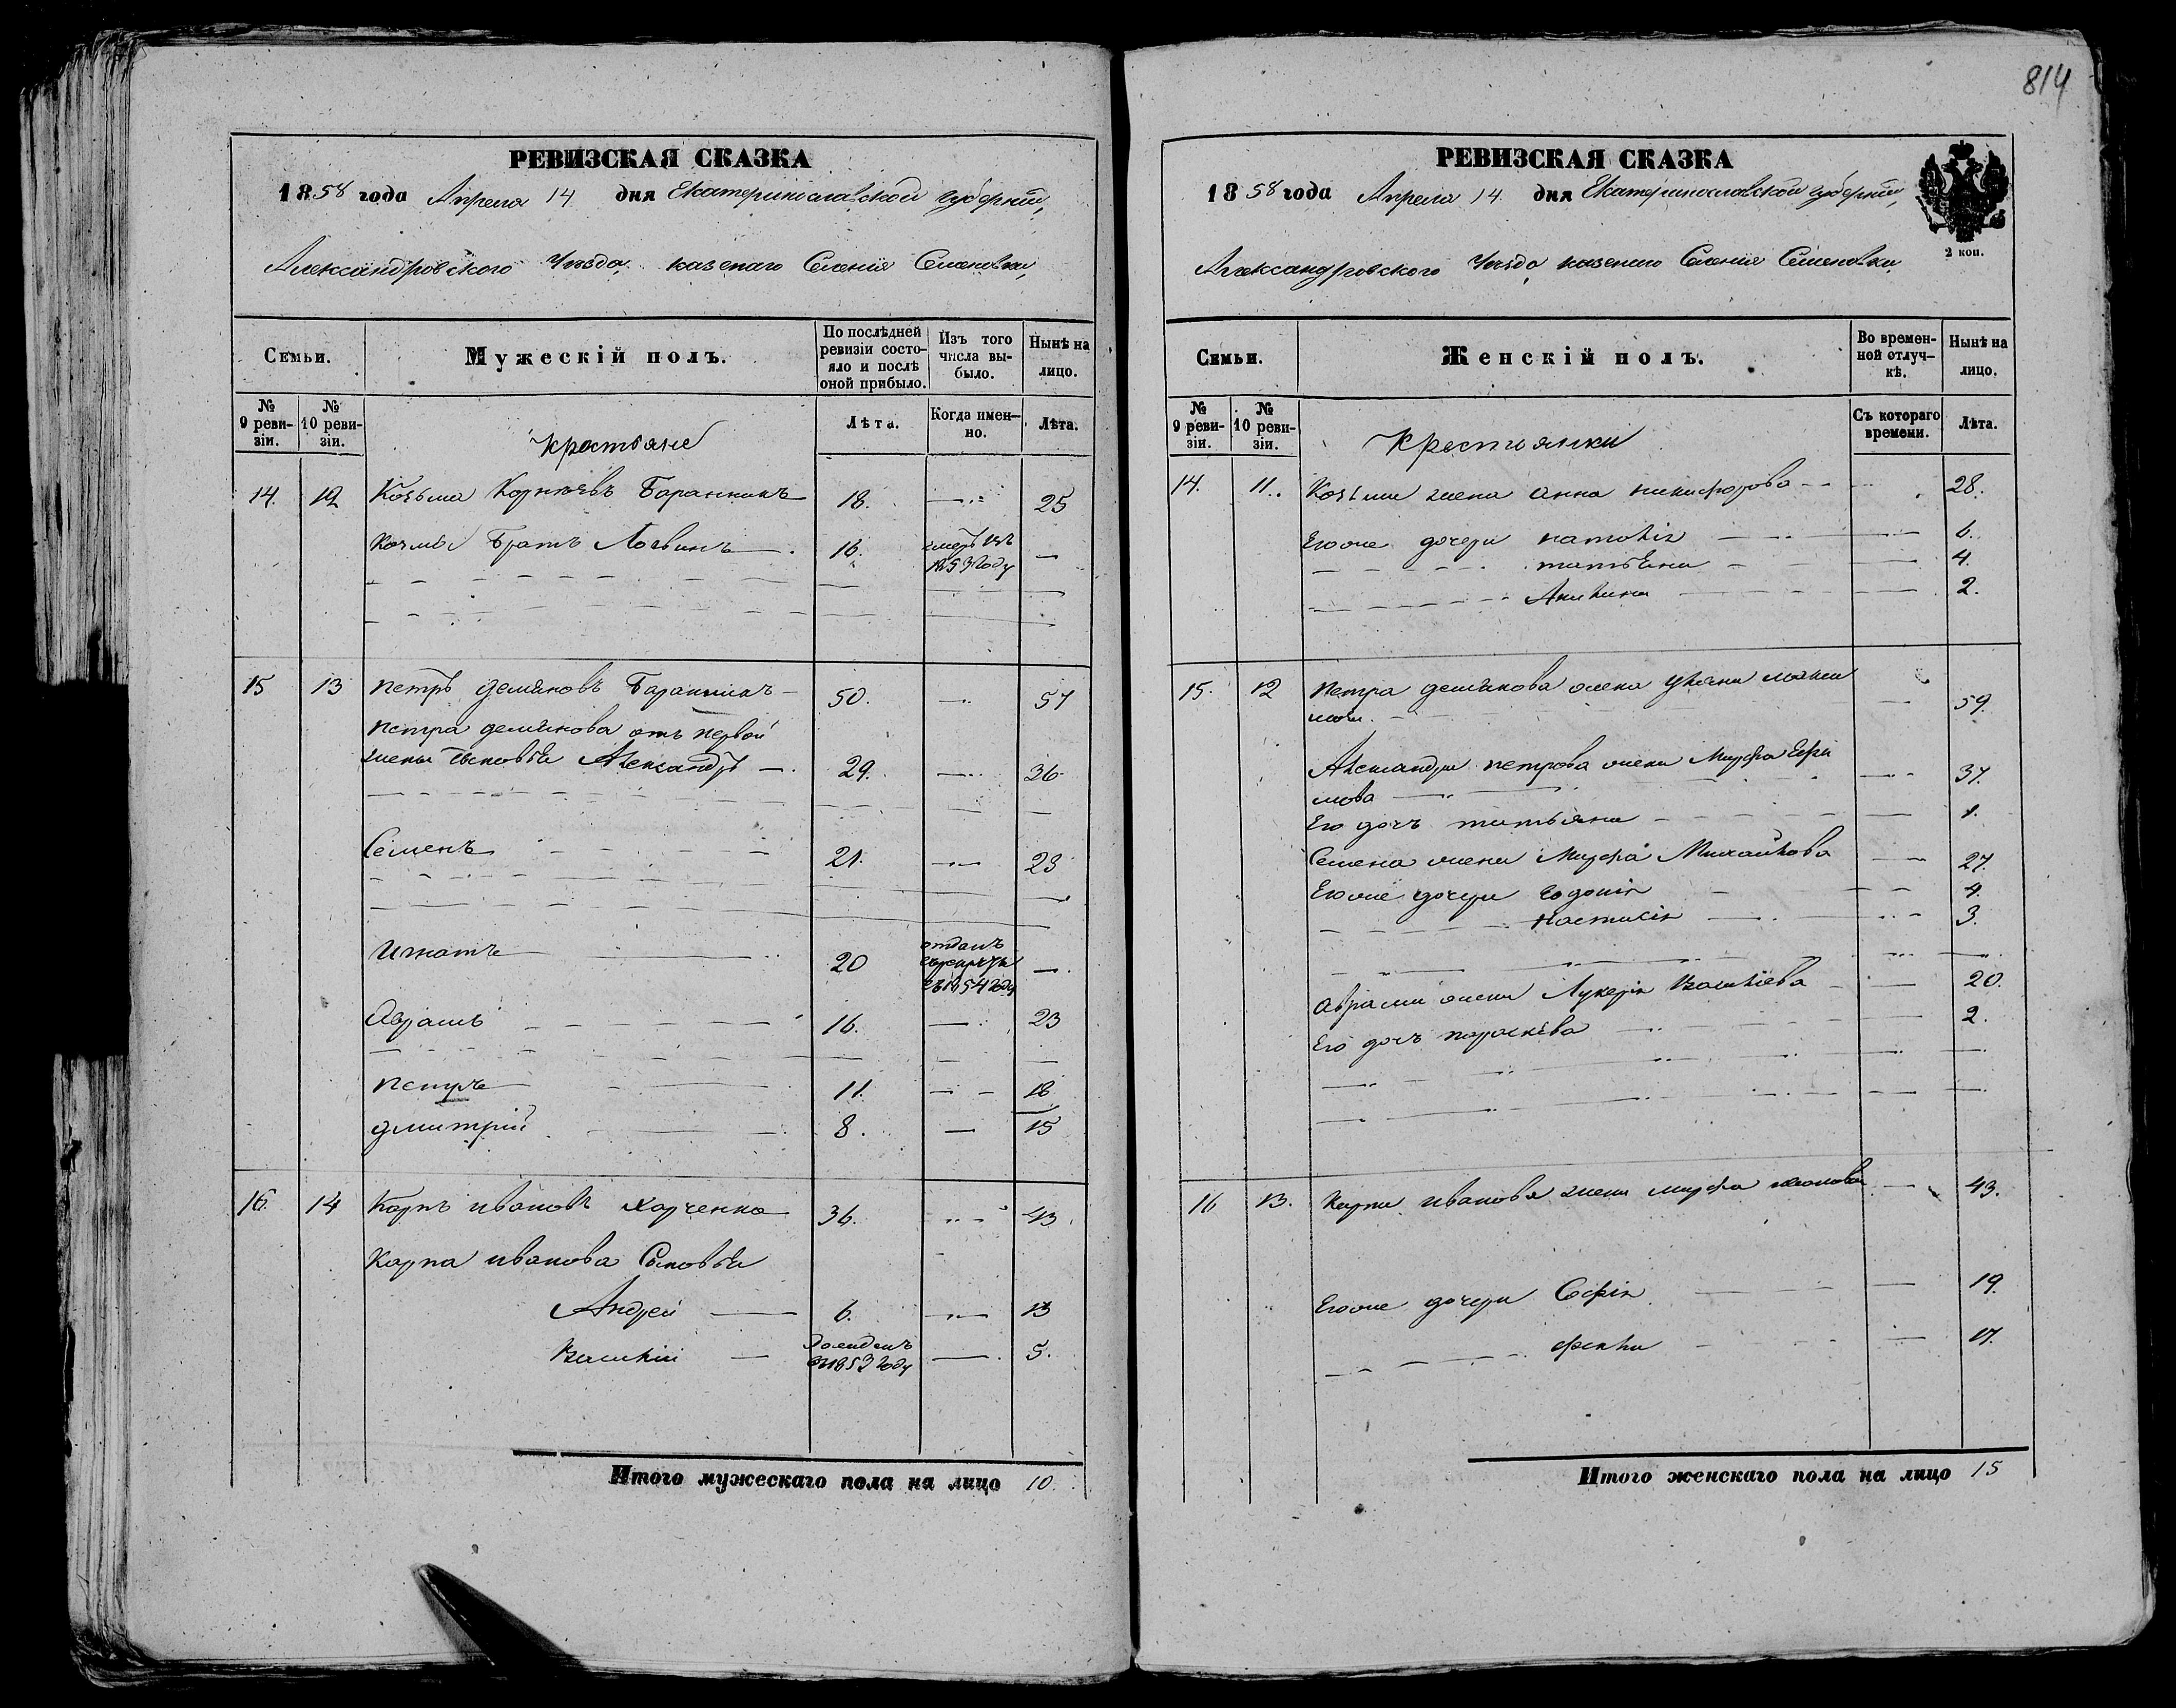 814
РЕВИЗСКАЯ СКАЗКА
1858 года Апреля 14 дня Екатеринославской губернии,
Александровского Уезда казенаго Селения Семеновки
Семьи.
Мужескій полъ.
По послѣдней ревизіи состояло и послѣ оной прибыло.
Изъ того числа выбыло.
Нынѣ на лицо.
№ 9 ревизіи.
№ 10 ревизіи.
Крестьяне
Лѣта.
Когда именно.
Лѣта.
14. 12 Козьма Корнѣевъ Баранникъ 18. 25
Козмы Братъ Логвинъ 16. умеръ въ 1853 году
15 13 Петръ Демьяновъ Баранникъ 50. 57
Петра Демьянова отъ первой
жены Сыновья Александръ 29. 36
Семенъ 21. 28
Игнатъ 20 отданъ въ рекруты въ 1854 году
Абрамъ 16. 23
Петръ 11. 18
Дмитрий 8. 15
16 14 Карпъ Ивановъ Харченко 36. 43
Карпа Иванова Сыновья
Андрей 6. 13
Василий рожденъ въ 1853 году 5.
Итого мужескаго пола на лицо 10.
РЕВИЗСКАЯ СКАЗКА
1858 года Апреля 14 дня Екатеринославской губернии,
Александровского Уезда казенаго Селения Семеновки
2 коп.
Семьи.
Женскій полъ.
Во временной отлучкѣ.
Нынѣ на лицо.
№ 9 ревизіи.
№ 10 ревизіи.
Крестьянки
Съ котораго времени.
Лѣта.
14. 11. Козьми жена Анна Никифорова 28.
Егоже дочери Наталия 6.
татьяна 4.
Акилина 2.
15. 12 Петра Демьянова жена Уляна
59.
Александра Петрова жена Марфа Ефи
мова 37.
Его дочь татьяна 1.
Семена жена Марфа Михайлова 27.
Егоже дочери 4.
Настасия 3.
Абрама жена Лукерия Васильева 20.
Его дочь Параскева 2.
16 13. Карпа Иванова жена Марфа 43.
Егоже дочери Софія 19.
Фекла 17.
Итого женскаго пола на лицо 15